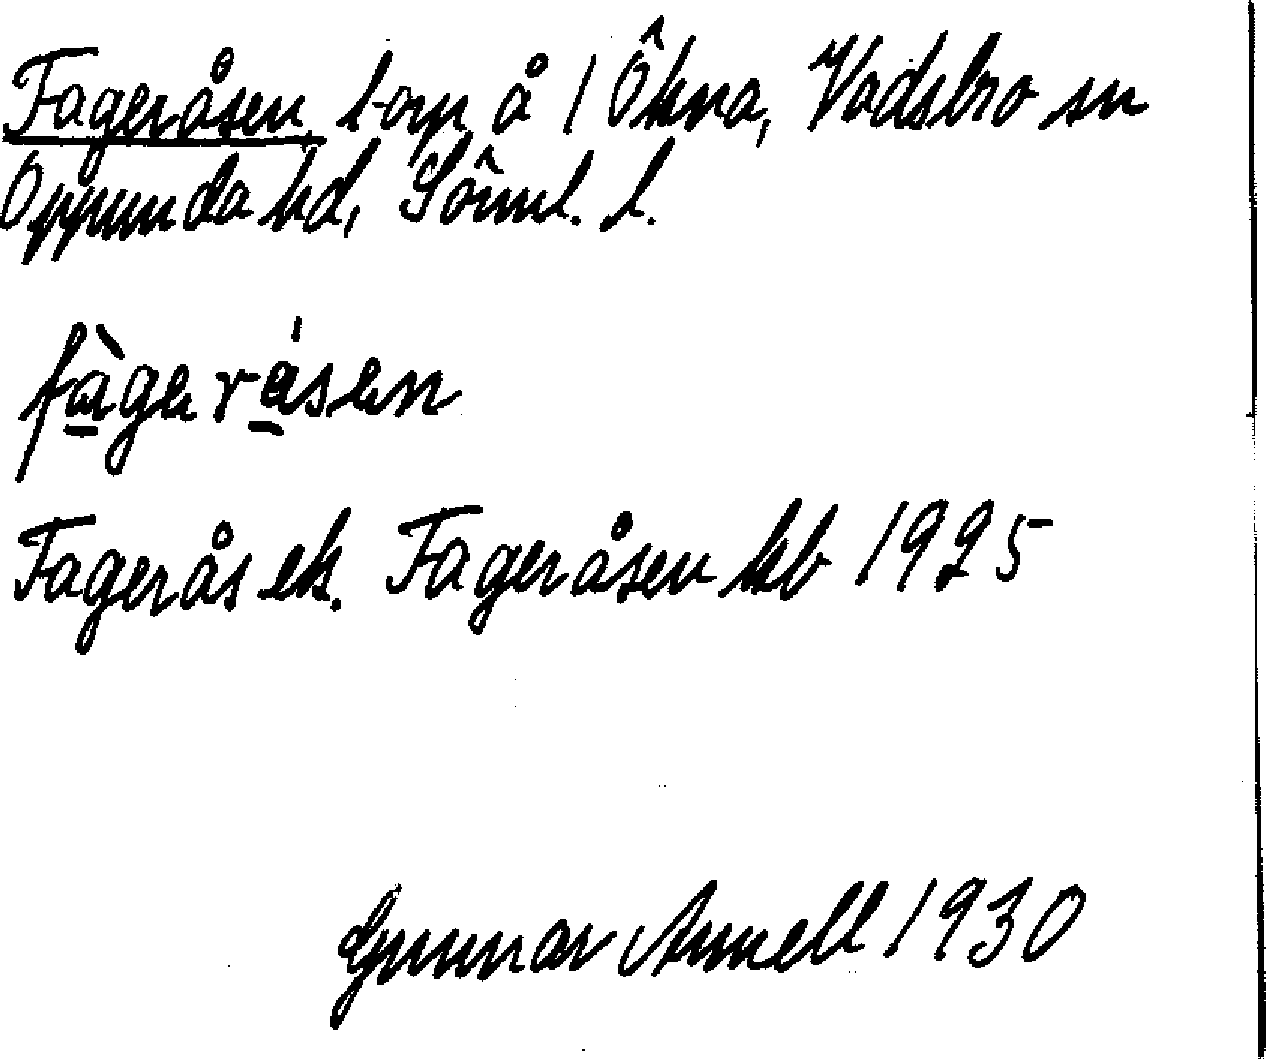 Fageråsen, torp å 1 Ökna, Vadsbro sn
Oppunda hd, Söml. l.
fàgeråsen
Fagerås ek. Fageråsen kb 1925
Gunnar Annell 1930